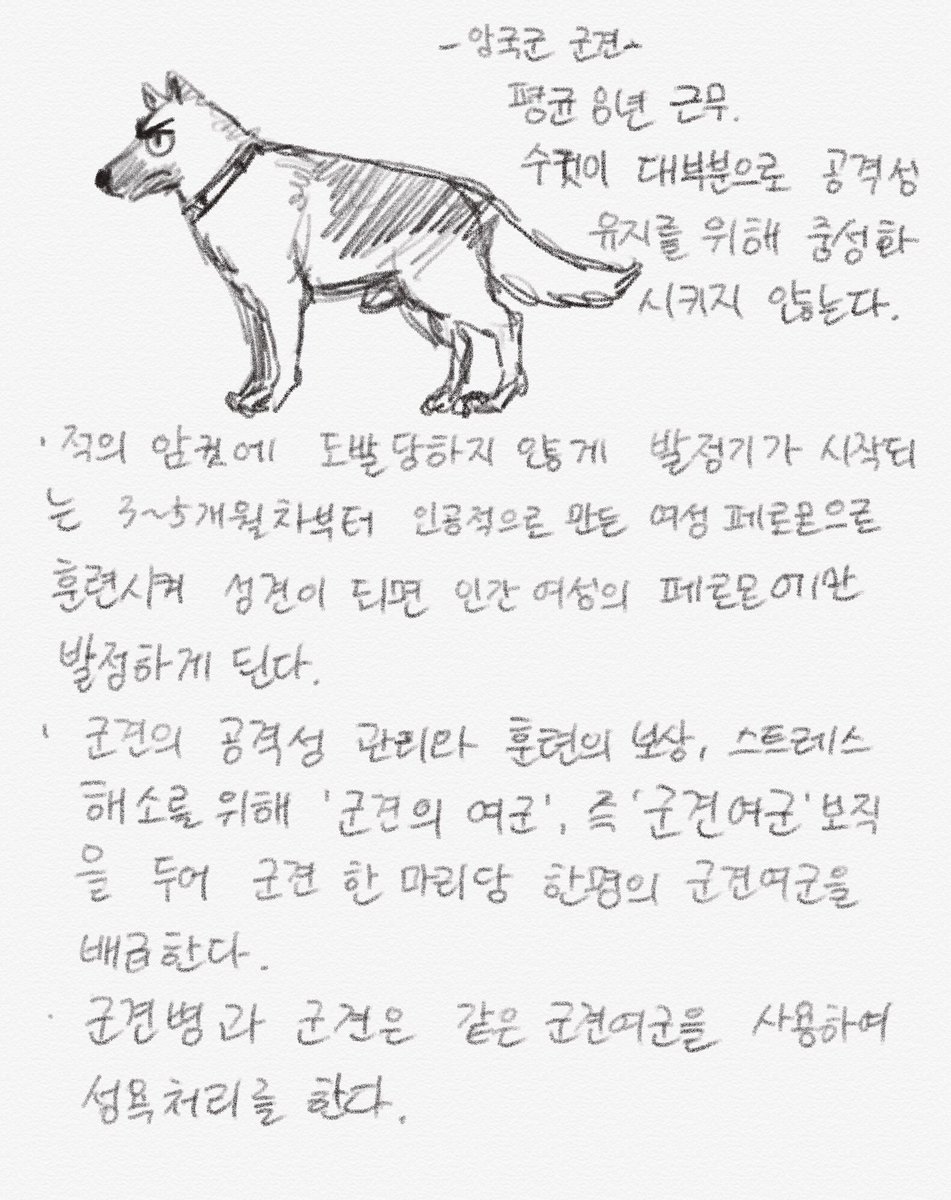 군견-
평균 8년 근무.
수컷이 대부분으로 공격성
유지를 위해 중성화
시키지 않는다.
· 적의 암컷에 도발당하지 않게 발정기가 시작되
는 3~5개월차부터 인공적으로 만든 여성 페로몬으로
훈련시켜 성견이 되면 인간 여성의 페로몬에만
발정하게 된다.
· 군견의 공격성 관리와 훈련의 보상, 스트레스
해소를 위해 '군견의 여군', 즉 '군견여군' 보직
을 두어 군견 한 마리당 한명의 군견여군을
배급한다.
· 군견병과 군견은 같은 군견여군을 사용하여
성욕처리를 한다.